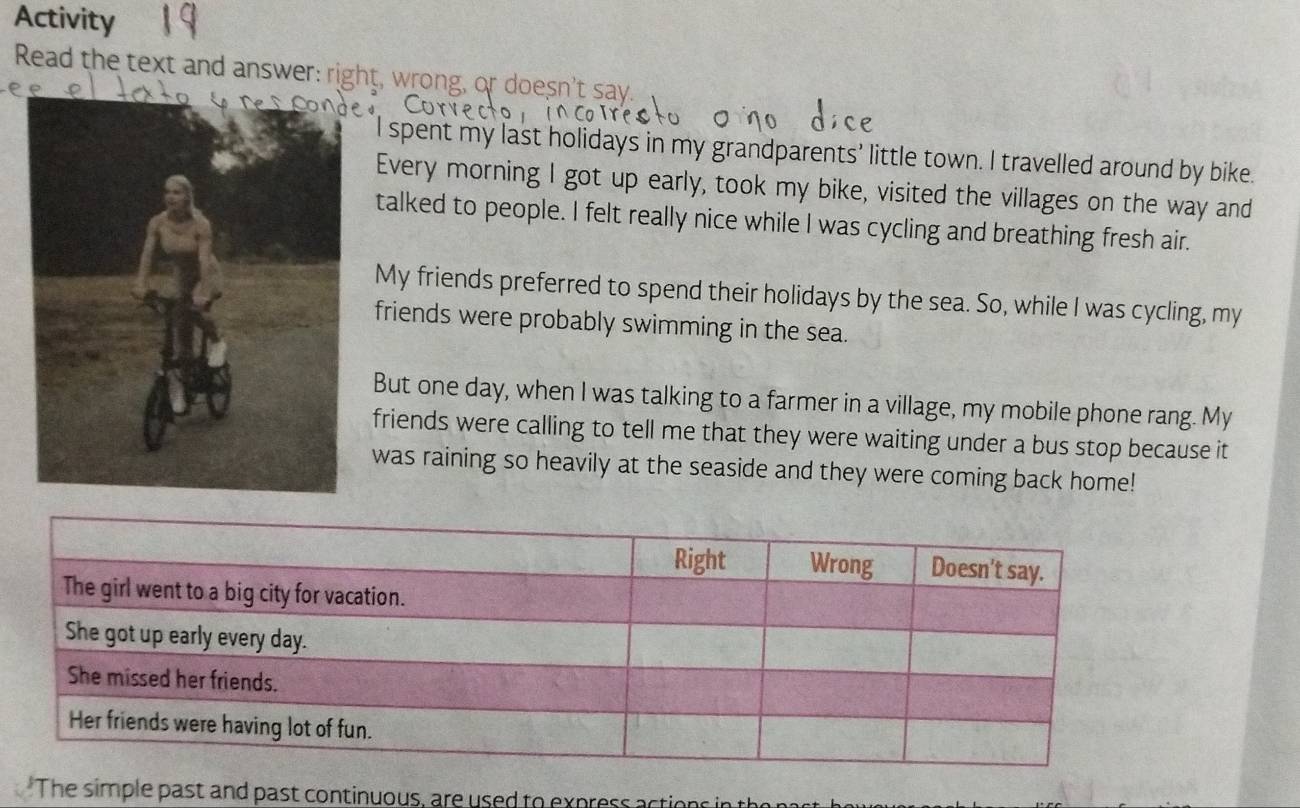 Activity 19
Read the text and answer: right, wrong, or doesn't say.
Lee el texto y responde: Correcto, incorrecto o no dice
I spent my last holidays in my grandparents' little town. I travelled around by bike.
Every morning I got up early, took my bike, visited the villages on the way and
talked to people. I felt really nice while I was cycling and breathing fresh air.
My friends preferred to spend their holidays by the sea. So, while I was cycling, my
friends were probably swimming in the sea.
But one day, when I was talking to a farmer in a village, my mobile phone rang. My
friends were calling to tell me that they were waiting under a bus stop because it
was raining so heavily at the seaside and they were coming back home!
Right Wrong Doesn't say.
The girl went to a big city for vacation.
She got up early every day.
She missed her friends.
Her friends were having lot of fun.
The simple past and past continuous, are used to express actions in the past